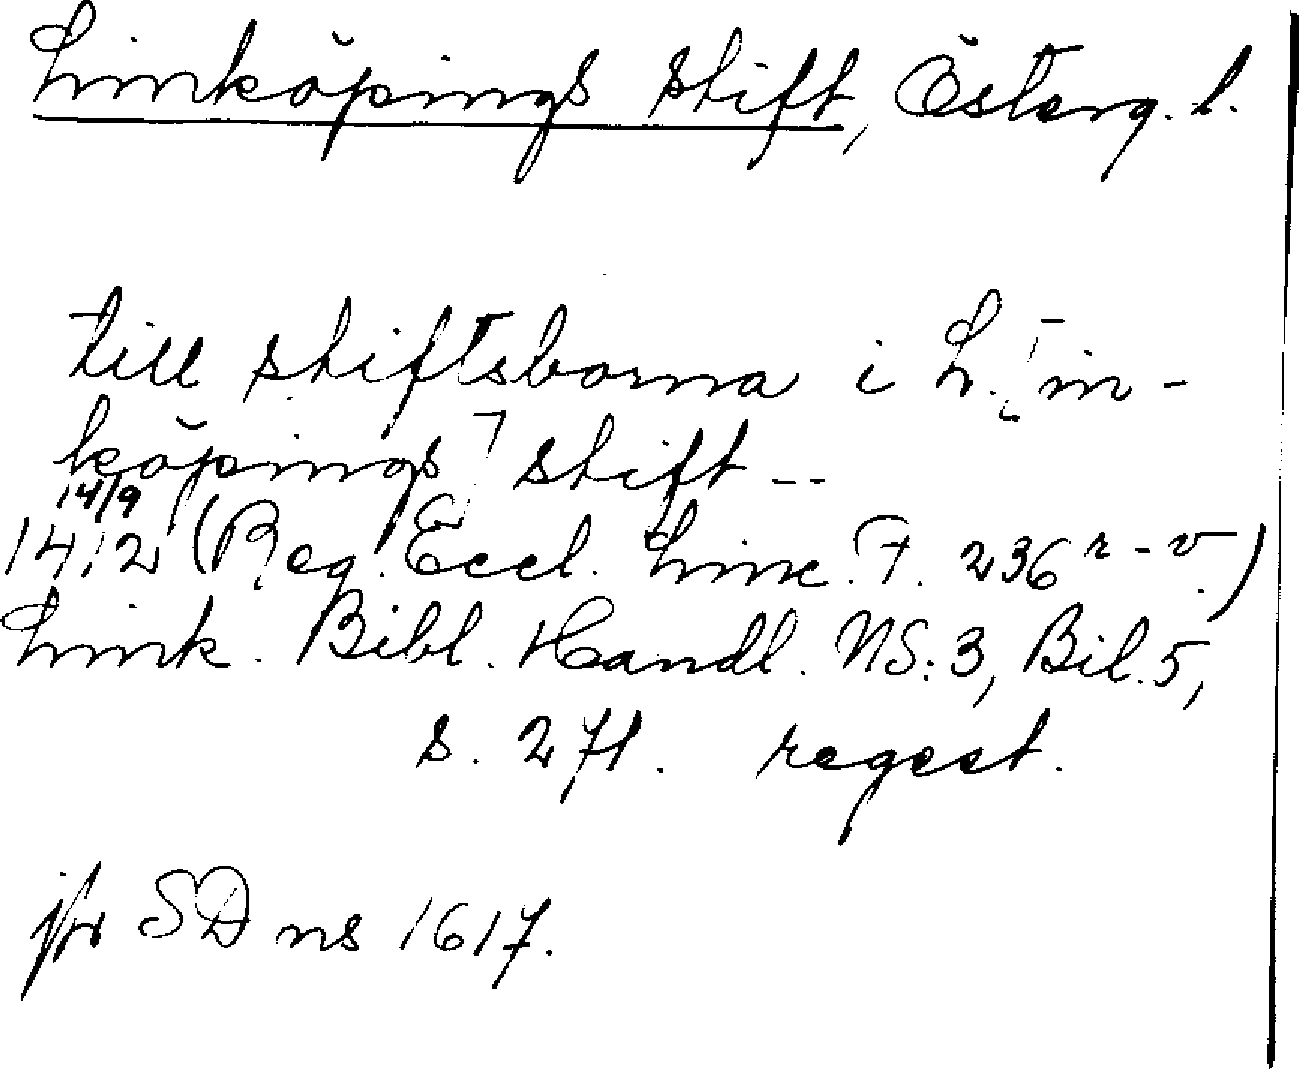 Linköpings stift, Österg. l.
till stiftsborna i L. [in-
köpings] stift --
14/9
1412 (Reg. Eccl. Linc. F. 236 r-v.)
Link. Bibl. Handl. NS: 3, Bil. 5,
s. 271. regest.
jfr SD ns 1617.